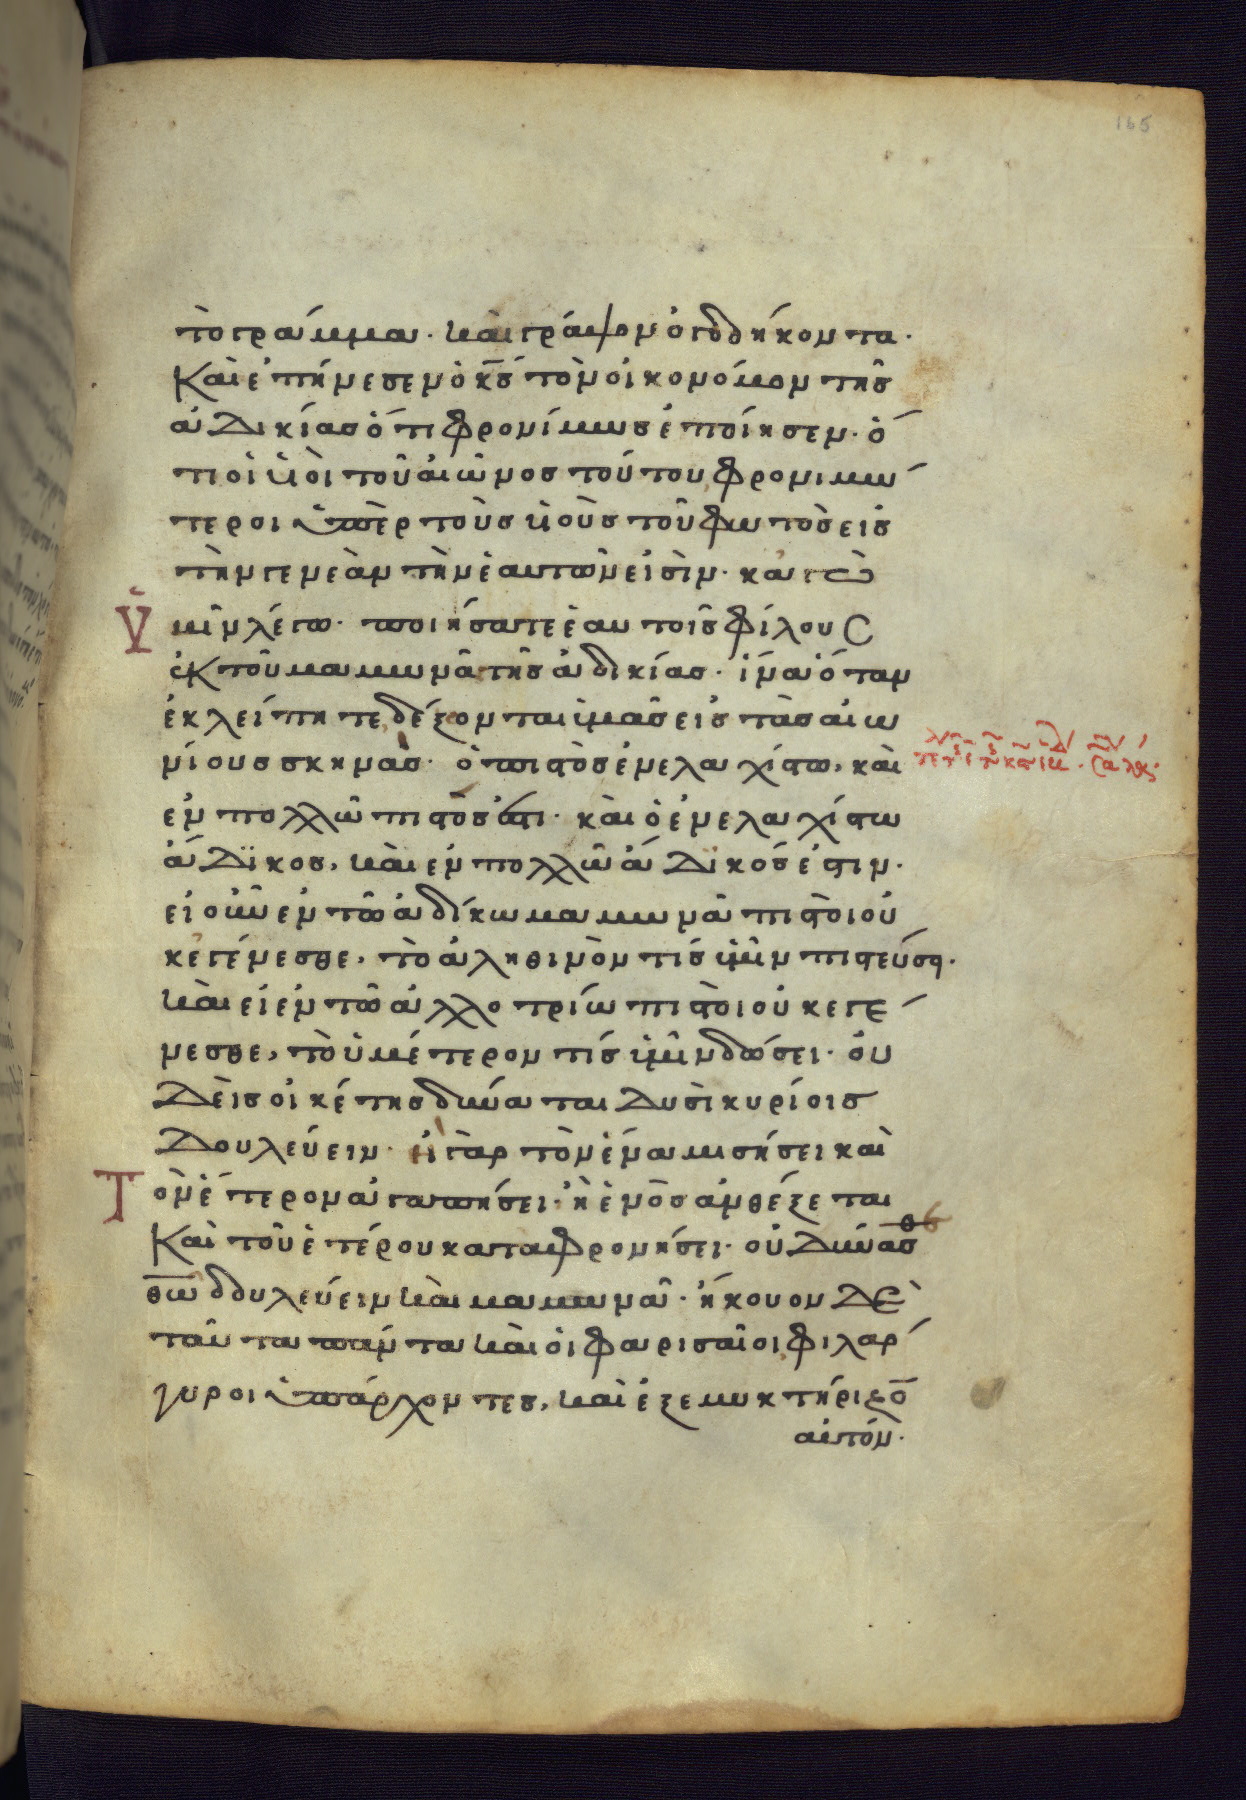 165
τὸ γράμμα· καὶ γράψον ὀγδοήκοντα·
Καὶ ἐπήνεσεν ὁ κ̅ς̅ τὸν οἰκονόμον τῆς
ἀδικίας ὅτι φρονίμως ἐποίησεν· ὅ
τι οἱ υἱοὶ τοῦ αἰῶνος τούτου φρονιμώ
τεροι ὑπὲρ τοὺς υἱοὺς τοῦ φωτὸς εἰς
τὴν γενεὰν τὴν ἑαυτῶν εἰσὶν· κἀγὼ
ὑμῖν λέγω· ποιήσατε ἑαυτοῖς φίλους
ἐκ τοῦ μαμωνᾶ τῆς ἀδικίας· ἵνα ὅταν
ἐκλείπητε δέξονται ὑμᾶς εἰς τὰς αἰω
νίους σκηνάς· ὁ πιστὸς ἐν ἐλαχίστω, καὶ
ἐν πολλῶ πιστός ἐστι· καὶ ὁ ἐν ἐλαχίστω
ἄδικος, καὶ ἐν πολλῶ ἄδικός ἐστιν·
εἰ οὖν ἐν τῶ ἀδίκω μαμωνᾶ πιστοὶ οὐ
κ ἐγένεσθε, τὸ ἀληθινὸν τίς ὑμῖν πιστεύση·
καὶ εἰ ἐν τῶ ἀλλοτρίω πιστοὶ οὐκ ἐγέ
νεσθε, τὸ ὑμέτερον τίς ὑμῖν δώσει· οὐ
δεὶς οἰκέτης δύναται δυσὶ κυρίοις
δουλεύειν· ἢ γὰρ τὸν ἕνα μισήσει καὶ
Τὸν ἕτερον ἀγαπήσει· ἢ ἑνὸς ἀνθέξεται
Καὶ τοῦ ἑτέρου καταφρονήσει· οὐ δύνασθε
θ̅ω̅ δουλεύειν καὶ μαμωνᾶ· ἤκουον δὲ
ταῦτα πάντα καὶ οἱ φαρισαῖοι φιλάρ
γυροι ὑπάρχοντες, καὶ ἐξεμυκτήριζο̅
αὐτόν·